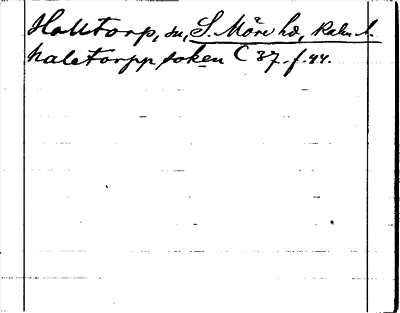 Halltorp, sn, S. Möre hd, Kalm. l.
haletorpp soken C 37. f. 44.